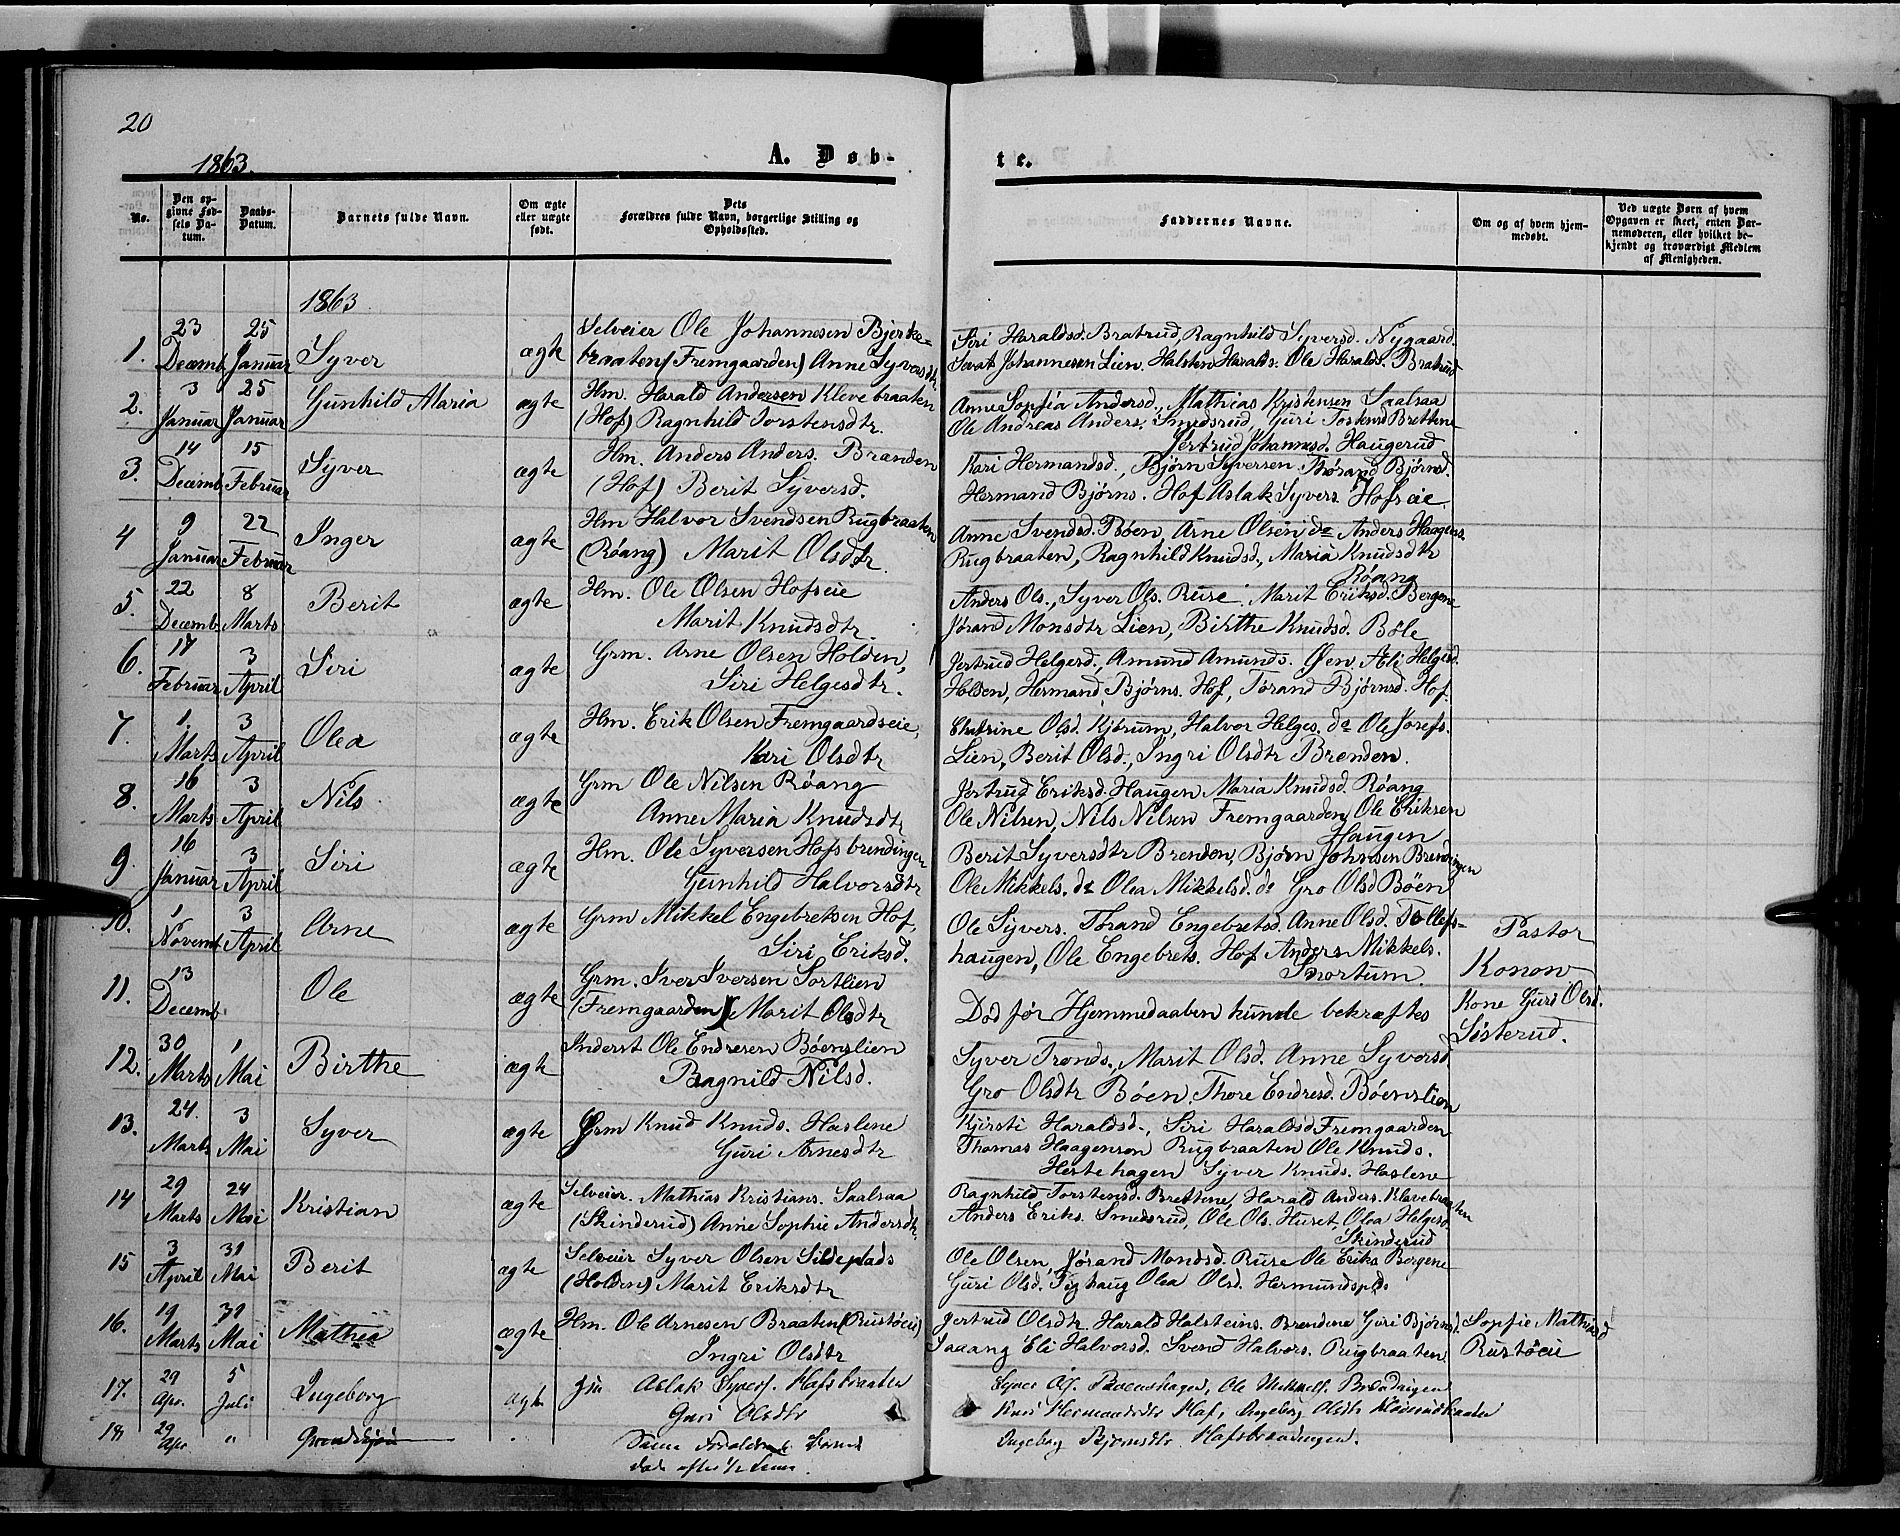 20
1863.
A. Døb-
te.
No.
Den op-
givne Fød-
sels Da-
tum.
Daabs-
Datum.
Barnets fulde Navn.
Om ægte
eller uægte
født.
Dets
Forældres fulde Navn, borgerlige Stilling og
Opholdssted.
Faddernes Navne.
Om og af hvem hjem-
medøbt.
Ved uægte Børn af hvem
Opgaven er skeet, enten Bar-
nemoderen, eller hvilket be-
kjendt og troværdigt Medlem
af Menigheden.
1863
1. 23 Decemb. 25 Januar Syver ægte
Selveier Ole Johannesen Bjerke-
braaten (Fremgaarden) Anne Syversdtr.
Siri Haraldsd. Bratrud, Ragnhild Syversd. Nygaard.
Johannesen Lien. Halsten Haralds. Ole Haralds. Bratrud
2. 3 Januar 25 Januar Gunhild Maria ægte
Hm. Harald Andersen Klevebraaten
(Hof) Ragnhild Torstensdtr.
Anne Sophia Andersd., Mathias Kristensen Saalsaa
Ole Andreas Anders. Smedsrud, Guri Brettene
Jertrud Johannesd. Haugerud
3. 14 Decemb. 15 Februar Syver ægte
Hm. Anders Anders. Branden
(Hof) Berit Syversd.
Kari Hermandsd., Bjørn Syversen Thorand Bjørnsd.
Hermand Bjørns. Hof Aslak Syvers. Hofseie
4 9 Januar 22 Februar Inger ægte
Hm Halvor Svendsen Rugbraaten
(Røang) Marit Olsdtr.
Anne Svendsd. Bøen, Arne Olsen do Anders Haagens.
Rugbraaten, Ragnhild Knudsd., Maria Knudsdtr
Røang
5. 22 Decemb. 8 Marts Berit ægte
Hm. Ole Olsen Hofseie
Marit Knudsdtr.
Anders Ols., Syver Ols. Ruse. Marit Eriksd. Bergene
Jørand Monsdtr Lien, Birthe Knudsd. Bøle
6. 17 Februar 3 April Siri ægte
Grm. Arne Olsen Holden,
Siri Helgesdtr.
Jertrud Helgesd., Amund Amunds. Øen. Eli Helgesd.
Holden, Hermand Bjørns. Hof, Torand Bjørnsd. Hof
7. 1. Marts 3 April Olea ægte
Hm. Erik Olsen Fremgaardseie,
Kari Olsdtr
Olsd. Kjørum, Halvor Helges. do Ole Josefs.
Lien, Berit Olsd., Ingri Olsdtr Brenden.
8. 16 Marts 3 April Nils ægte
Grm Ole Nilsen Røang
Anne Maria Knudsdtr
Jertrud Eriksd. Haugen Maria Knudsd. Røang
Ole Nilsen, Nils Nilsen Fremgaarden, Ole Eriksen
Haugen
9. 16 Januar 3 April Siri ægte
Hm. Ole Syversen Hofsbrendingen
Gunhild Halvorsdtr
Berit Syversdtr Brenden, Bjørn Johnsen Brendingen
Ole Mikkels. do Olea Mikkelsd. do Gro Olsd Bøen
10. 1 Novemb. 3 April Arne ægte
Grm Mikkel Engebretsen Hof,
Siri Eriksd.
Ole Syvers. Thorand Engebretsd. Anne Olsd. Tollefs-
haugen, Ole Engebrets. Hof Anders Mikkels.
Snortum.
Pastor
Konow
11. 13 Decemb. Ole ægte
Grm. Iver Iversen Sortlien
(Fremgaarden) Marit Olsdtr
Død før Hjemmedaaben kunde bekræftes
Kone Guri Olsd.
Søsterud.
12. 30 Marts 1 Mai Birthe ægte
Inderst Ole Endresen Bøenslien
Ragnild Nilsd.
Syver Tronds., Marit Olsd. Anne Syversd.
Gro Olsdtr Bøen, Thore Endresd. Bøenslien
13. 24. Marts 3 Mai Syver ægte
Grm Knud Knuds. Haslene
Guri Arnesdtr
Kjersti Haraldsd., Siri Haraldsd Fremgaarden
Thomas Haagensen Rugbraaten Ole Knuds.
Hestehagen Syver Knuds. Haslene
14 29 Marts 24 Mai Kristian ægte
Selveier. Mathias Kristians. Saalsaa
(Skinderud) Anne Sophie Andersdtr
Ragnhild Torstensd. Brettene, Harald Anders. Klevebraaten
Anders Eriks. Smedsrud, Ole Ols. Huset, Olea Helgesd.
Skinderud
15 3 April 31 Mai Berit ægte
Selveier Syver Olsen Sildeplads
(Holden) Marit Eriksdtr
Ole Olsen, Jørand Monsdsd. Ruse Ole Eriks Bergene
Guri Olsd. Fighaug Olea Olsd. Hermundspl.
16. 19 Marts 31 Mai Mathea ægte
Hm. Ole Arnesen Braaten (Rustøeie)
Ingri Olsdtr
Jertrud Olsdtr. Harald Halsteins. Brendene Guri Bjørnsd.
Saaang Eli Halvorsd. Svend Halvors. Rugbraaten
Sophie Mathisd
Rustøeie
17. 29 Apr. 5 Juli Ingeborg ægte
Aslak Syvers. Hofsbraaten
Guri Olsdtr
Syver Ols. Bøenshagen, Ole Mikkels. Brendingen
Kari Hermandsdtr Hof, Ingeborg Olsdtr
18. 29 Apr "
Samme Forældre
døde efter 1/2 Time.
Ingeborg Bjørnsdtr. Hofsbrendingen.